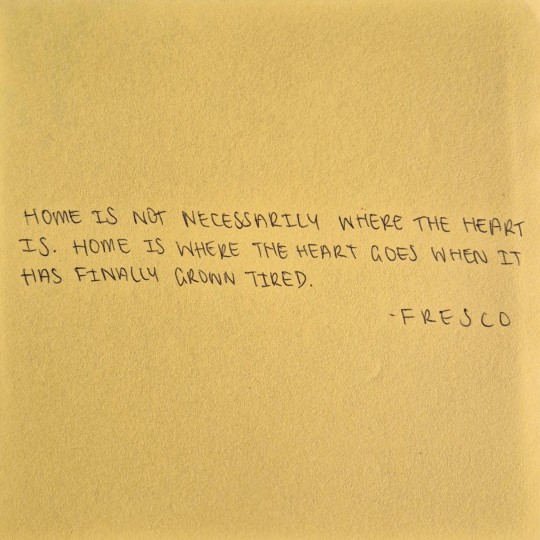 HOME IS NOT NECESSARILY WHERE THE HEART
IS. HOME IS WHERE THE HEART GOES WHEN IT
HAS FINALLY GROWN TIRED.
-FRESCO